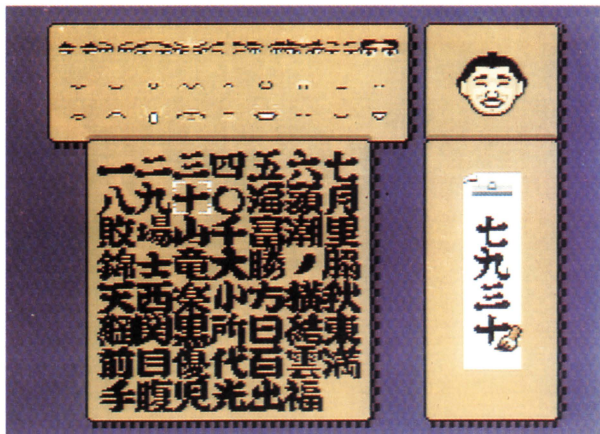 一二三四五六七
八九十〇海瀬月
敗場山千富潮里
錦士竜大勝ノ脇
天西楽小方横秋
綱関黒所日結東
前目優代百雲満
手腹児光出福
七九三十